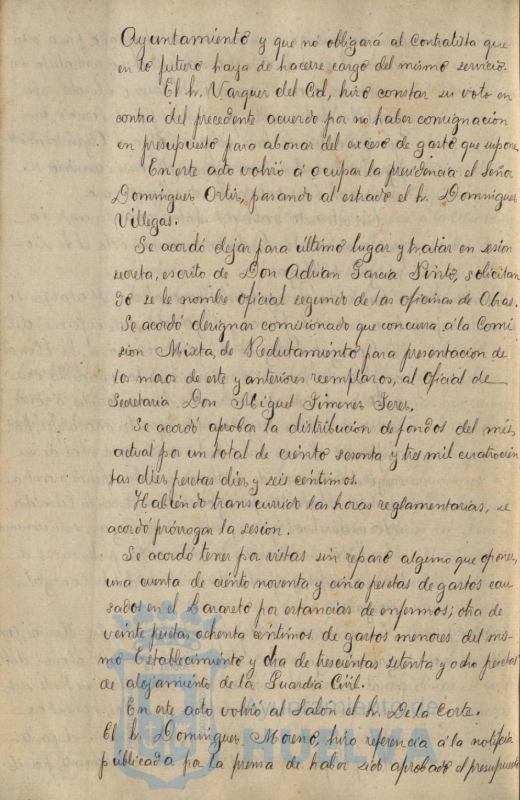 Ayuntamiento y que no obligará al Contratista que
en lo futuro haya de hacerse cargo del mismo servicio.
El h. Vazquez del Cid, hizo constar su voto en
contra del precedente acuerdo por no haber consignacion
en presupuesto para abonar del exceso de gasto que supone.
En este acto volvió á ocupar la presidencia el Señor
Dominguez Ortiz, pasando al estrado el h. Dominguez
Villegas.
Se acordó dejar para último lugar y tratar en sesion
secreta, escrito de Don Adrian Garcia Pinto, solicitan
do se le nombre oficial segundo de las oficinas de Obras.
Se acordó designar comisionado que concurra, á la Comi
sion Mixta, de Reclutamiento para presentacion de
los mozos de este y anteriores reemplazos, al Oficial de
Secretaria Don Miguel Jimenez Perez.
Se acordó aprobar la distribucion de fondos del mes
actual por un total de ciento sesenta y tres mil cuatrocien
tas diez pesetas diez y seis centimos.
Habiendo transcurrido las horas reglamentarias, se
acordó prórrogar la sesion.
Se acordó tener por vistas sin reparo alguno que oponer,
una cuenta de ciento noventa y cinco pesetas de gastos cau
sados en el Lazareto por estancias de enfermos; otra de
veinte pesetas ochenta céntimos de gastos menores del mis-
mo Establecimiento y otra de trescientas setenta y ocho pesetas
de alojamiento de la Guardia Civil.
En este acto volvió al Salon el h. De la Corte.
El h. Dominguez Moreno, hizo referencia á la noticia
publicada por la prensa de haber sido aprobado el presupuesto
Ayuntamiento de
HUELVA